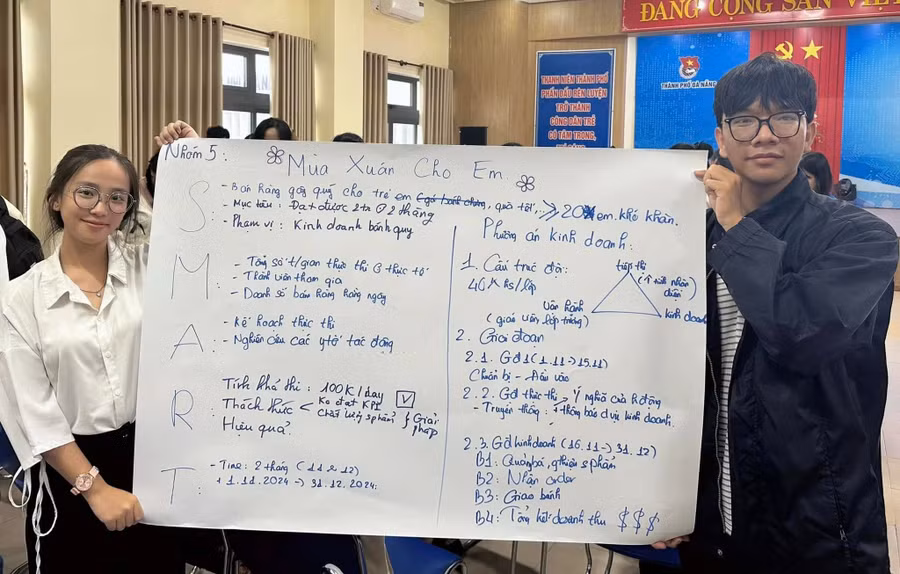 ĐẢNG CỘNG SẢN VIỆT
THÀNH PHỐ ĐÀ NẴNG
THANH NIÊN THÀNH PHỐ
PHẤN ĐẤU RÈN LUYỆN
TRỞ THÀNH
CÔNG DÂN TRẺ
CÓ TÂM TRONG,
Nhóm 5:
Mùa Xuân Cho Em
S
- Bán hàng gây quỹ cho trẻ em, quà tết, ...>> 20 em khó khăn.
- Mục tiêu: Đạt được 2tr @ 2 tháng
- Phạm vi: Kinh doanh bánh quy
M
- Tổng số t/gian thực thi @ thực tế
- Thành viên tham gia
- Doanh số bán hàng hàng ngày
A
- Kế hoạch thực thi
- Nghiên cứu các ytố tác động
R
Tính khả thi: 100K/day
Thách thức < Ko đạt KPI
chất lượng sphẩm } Giải pháp
Hiệu quả
T
- Time: 2 tháng (11 & 12)
+ 1.11.2024 -> 31.12.2024.
Phương án kinh doanh:
1. Cấu trúc đội:
40 hs/lớp
tiếp thị
vận hành
(giáo viên, lớp trưởng)
kinh doanh
2. Giai đoạn
2.1. Gđ1 (1.11->15.11)
Chuẩn bị - Đầu vào
2.2. Gđ thực thi -> Ý nghĩa của hđộng
- Truyền thông: + thông báo dvị kinh doanh.
2.3. Gđ kinh doanh (16.11->31.12)
B1: Quảng bá, gthiệu sphẩm
B2: Nhận order
B3: Giao bánh
B4: Tổng kết doanh thu $ $ $